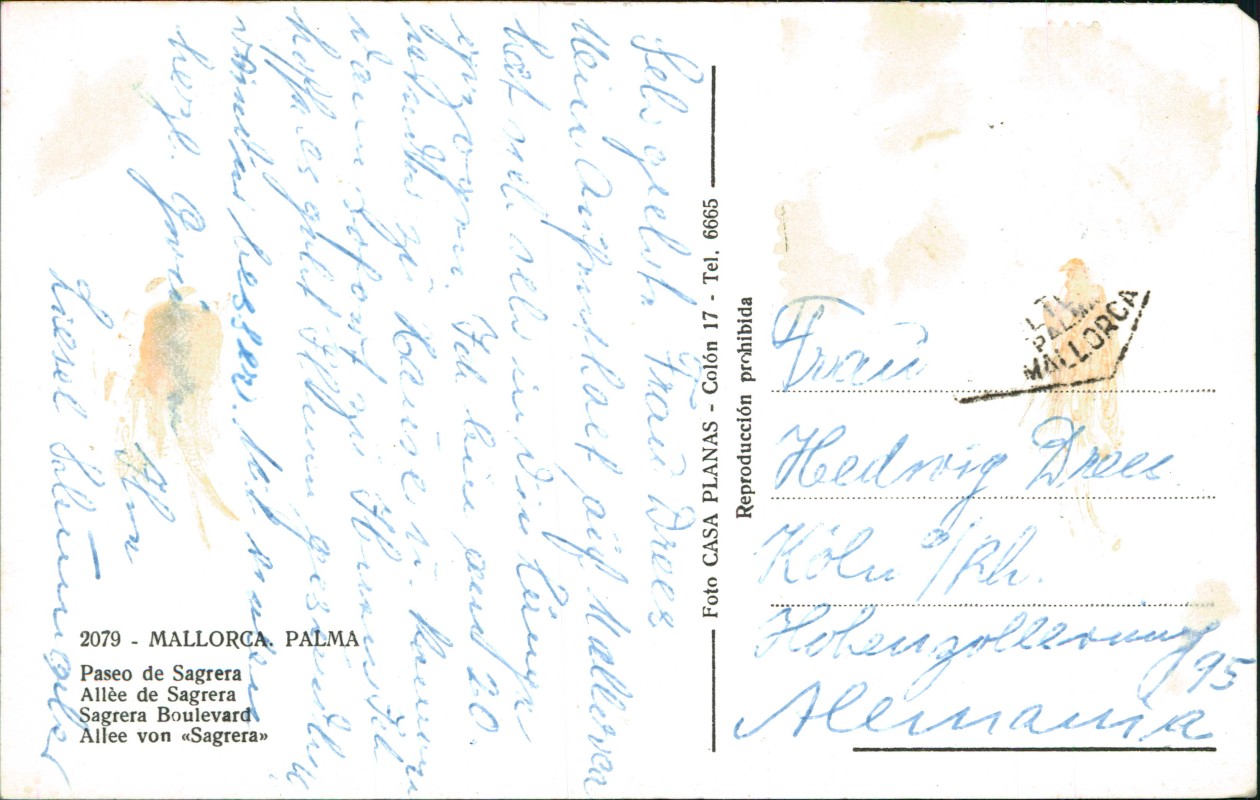 Sehr geehrte Frau Drees
Mein Aufenthalt auf Mallorca
hat sich sehr in die Länge
gezogen. Ich bin am 20.
zu Hause u. komme
dann sofort zu Ihnen. Ich
hoffe, es geht Ihnen gesundh.
besser.
herzl. Grüße
Ihre
Liesel
2079 - MALLORCA. PALMA
Paseo de Sagrera
Allèe de Sagrera
Sagrera Boulevard
Allee von «Sagrera»
Foto CASA PLANAS - Colón 17 - Tel. 6665
Reproducción prohibida
PALMA
MALLORCA
Frau
Hedwig Drees
Köln a/Rh.
Hohenzollernring
95
Alemania